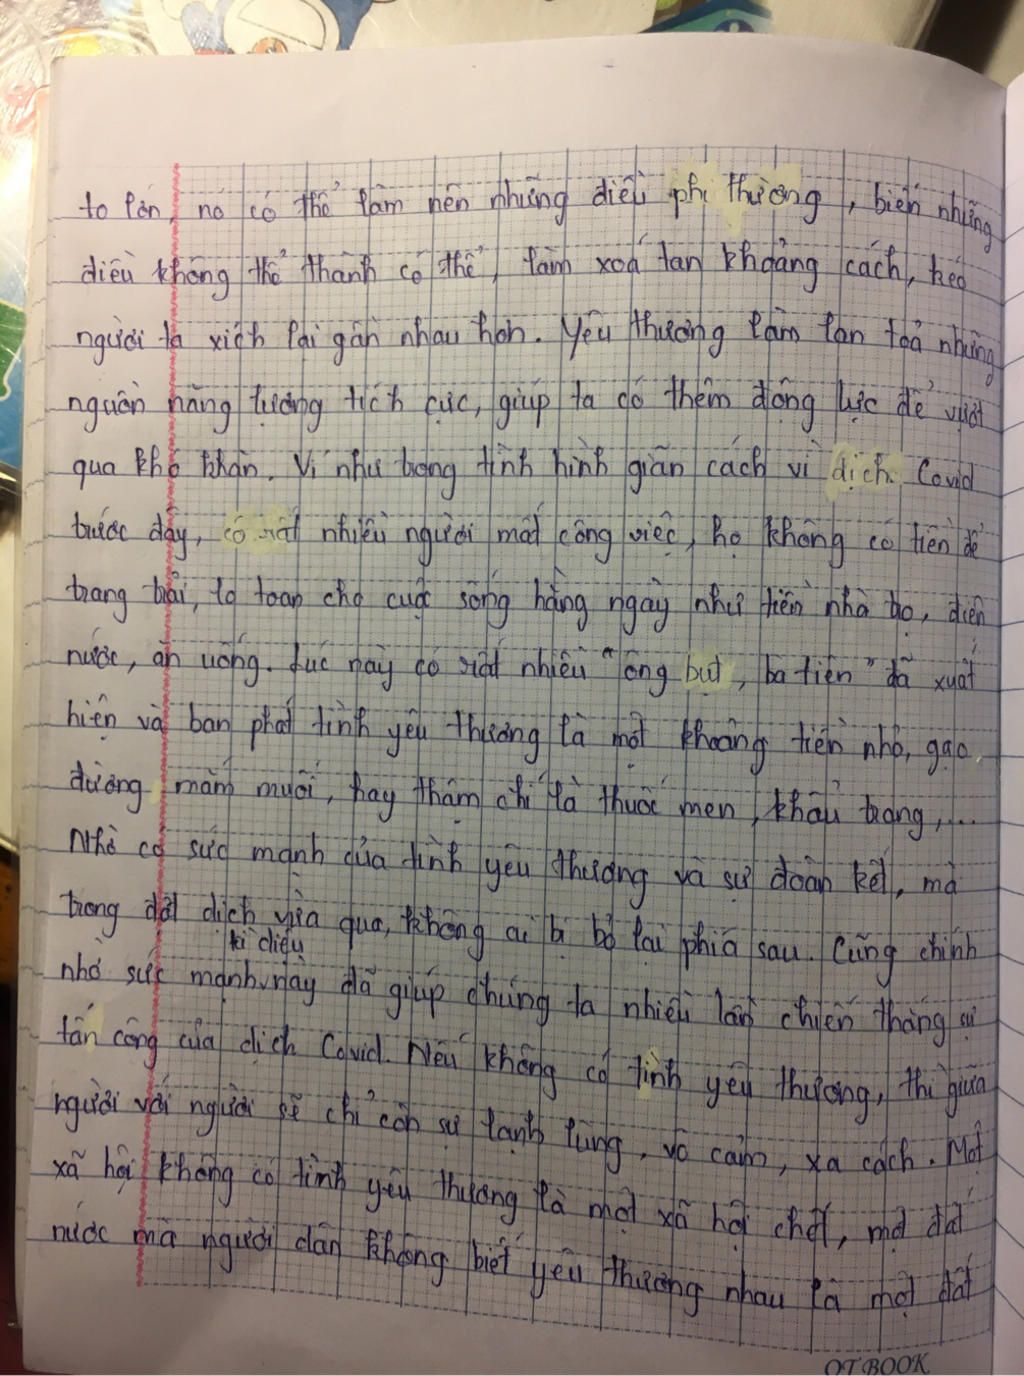 to lớn, nó có thể làm nên những điều phi thường, biến những
điều không thể thành có thể, làm xoá tan khoảng cách, kéo
người ta xích lại gần nhau hơn. Yêu thương làm lan toả những
nguồn năng lượng tích cực, giúp ta có thêm động lực để vượt
qua khó khăn. Ví như trong tình hình giãn cách vì dịch Covid
trước đây, có rất nhiều người mất công việc, họ không có tiền để
trang trải, lo toan cho cuộc sống hằng ngày như tiền nhà trọ, điện
nước, ăn uống. Lúc này có rất nhiều "ông bụt, bà tiên" đã xuất
hiện và ban phát tình yêu thương là một khoảng tiền nhỏ, gạo,
đường mắm muối, hay thậm chí là thuốc men, khẩu trang,...
Nhờ có sức mạnh của tình yêu thương và sự đoàn kết, mà
trong đợt dịch vừa qua, không ai bị bỏ lại phía sau. Cũng chính
nhờ sức mạnh kì diệu này đã giúp chúng ta nhiều lần chiến thắng sự
tấn công của dịch Covid. Nếu không có tình yêu thương, thì giữa
người với người sẽ chỉ còn sự lạnh lùng, vô cảm, xa cách. Một
xã hội không có tình yêu thương là một xã hội chết, một đất
nước mà người dân không biết yêu thương nhau là một đất
OT BOOK